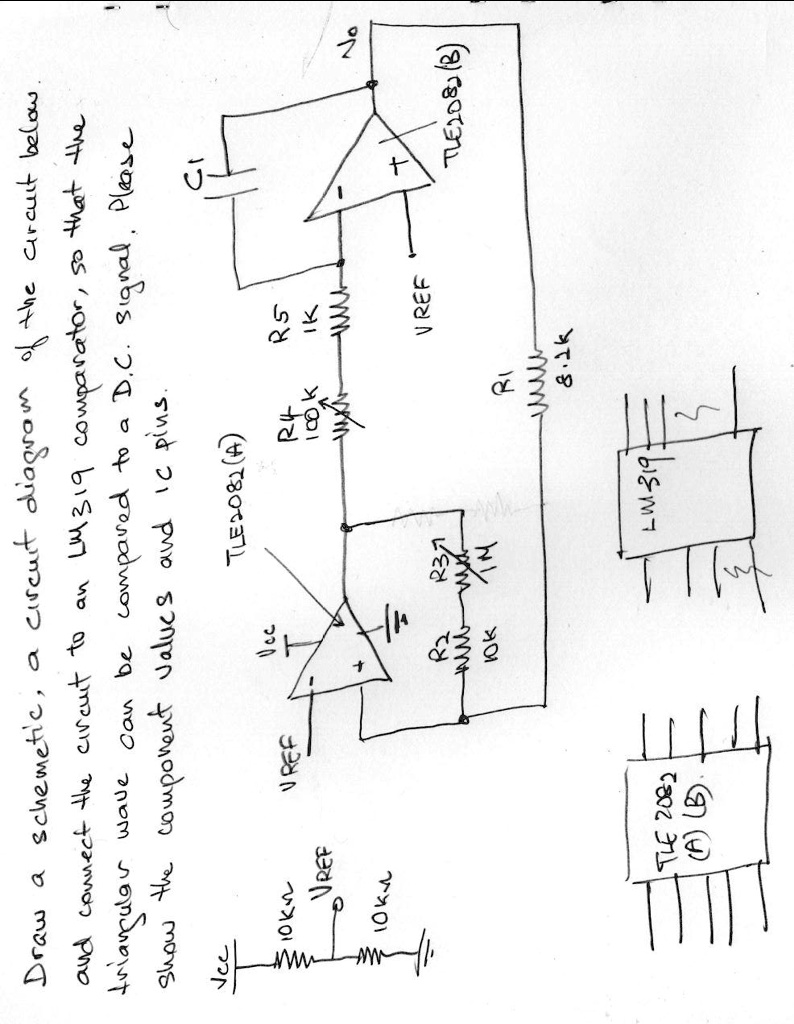 Draw a schemetic, a circuit diagram of the circuit below
and connect the circuit to an LM319 comparator, so that the
triangular wave can be compared to a D.C. signal. Please
show the component values and IC pins.
Vcc
10KΩ
VREF
10KΩ
VREF
Vcc
-
+
TLE2082(A)
R4
100K
R5
1K
C1
-
+
VREF
Vo
TLE2082(B)
R2
10K
R3
1M
R1
8.2K
TLE 2082
(A) (B).
LM319